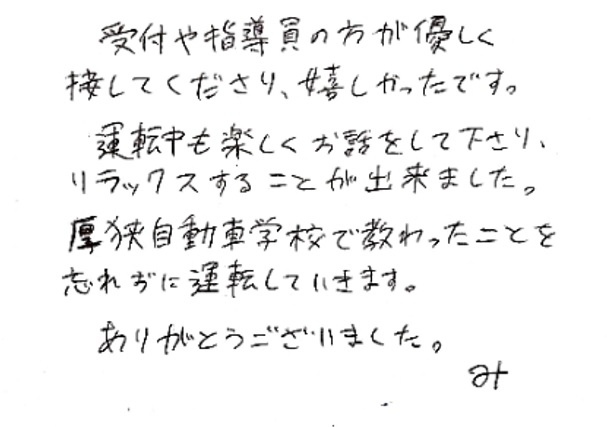 受付や指導員の方が優しく
接してくださり、嬉しかったです。
運転中も楽しくお話をして下さり、
リラックスすることが出来ました。
厚狭自動車学校で教わったことを
忘れずに運転していきます。
ありがとうございました。
み